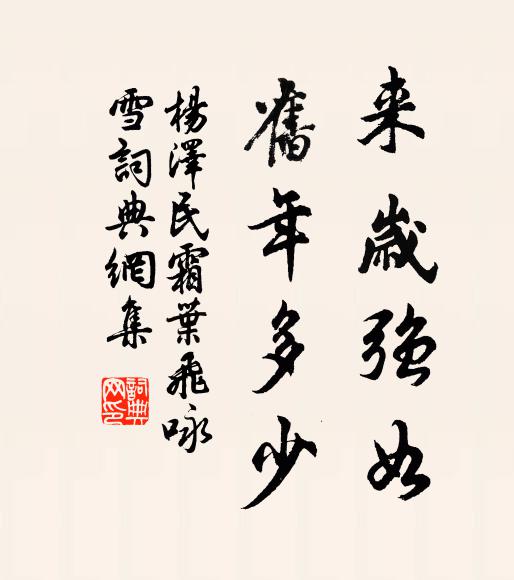 来歲強如
舊年多少
楊澤民霜葉飛咏
雪詞典網集
詞典网印